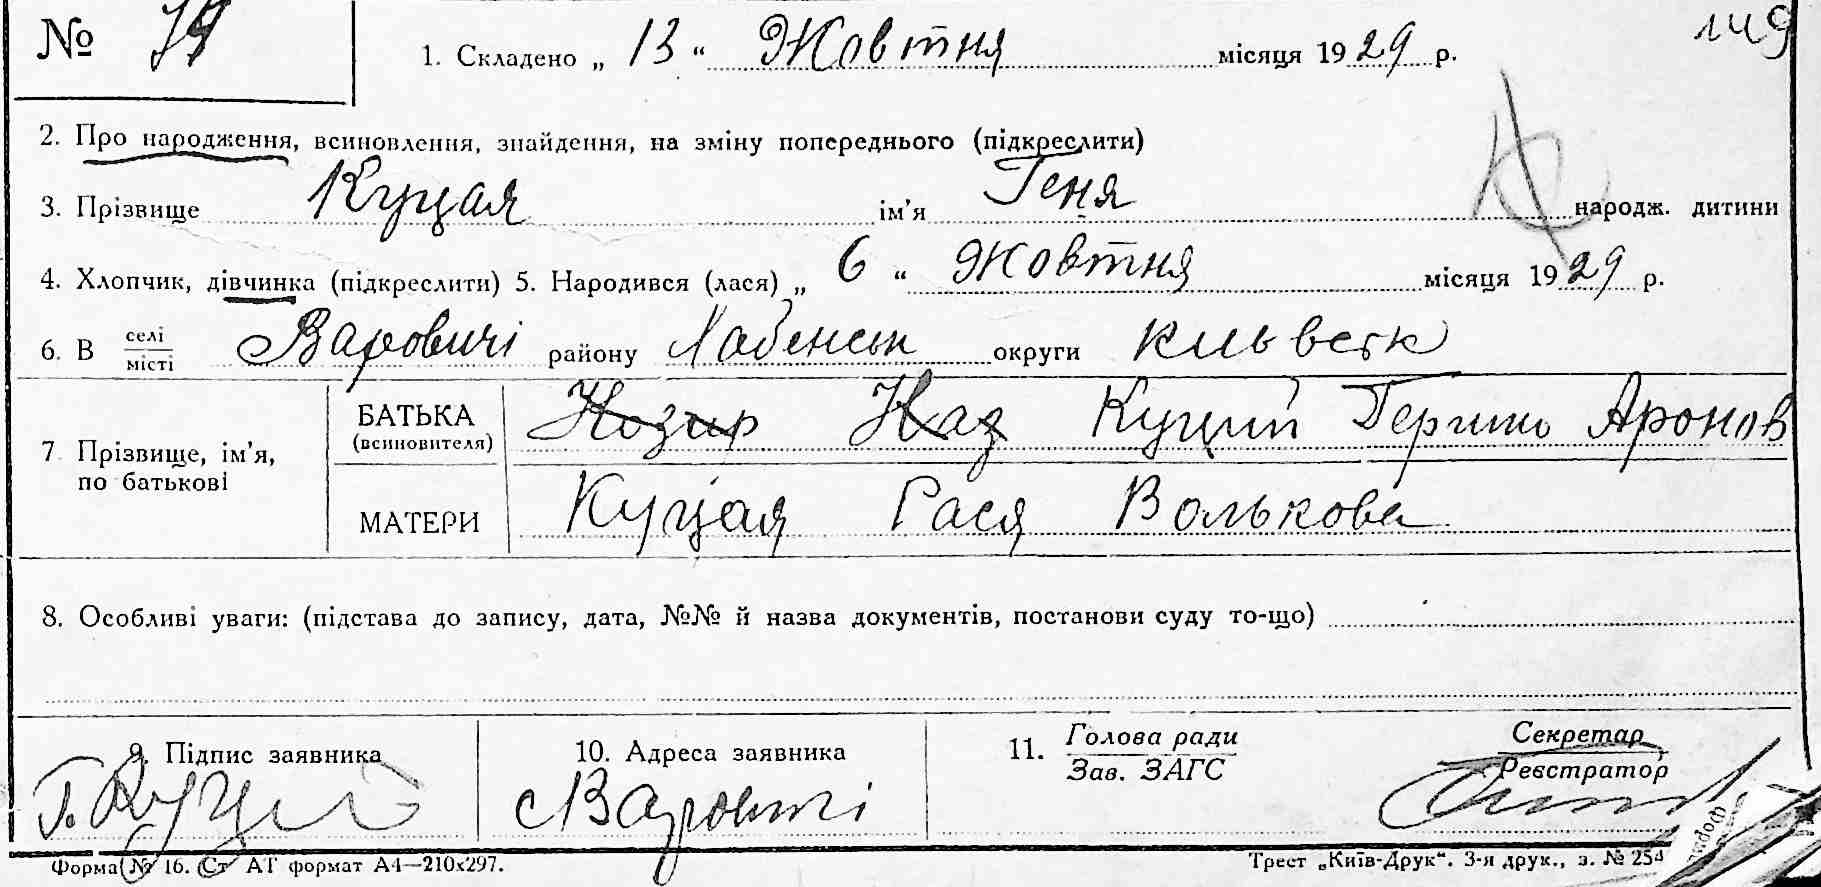 № 74
1. Складено „ 13 “ Жовтня місяця 1929 р.
2. Про народження, всиновлення, знайдення, на зміну попереднього (підкреслити)
3. Прізвище Куцая ім’я Геня народж. дитини
4. Хлопчик, дівчинка (підкреслити) 5. Народився (лася) „ 6 “ Жовтня місяця 1929 р.
6. В селі/місті Варовичі району Хабенськ округи
7 Прізвище, ім’я, по батькові
БАТЬКА (всиновителя) Козир Куций Гершко Аронов
МАТЕРИ Куцая Рася Волькова
8. Особливі уваги: (підстава до запису, дата, №№ й назва документів, постанови суду то-що)
9. Підпис заявника 10. Адреса заявника 11. Голова ради/Зав. ЗАГС Секретар/Реєстратор
Г. Куций с Варовичі
Форма № 16. Ст АТ формат А4—210х297. Трест „Київ-Друк“. 3-я друк., з. № 254